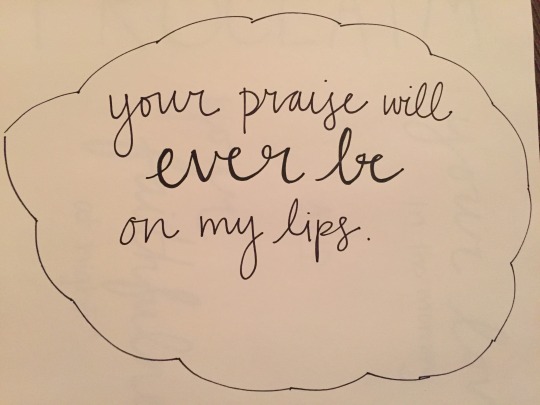 your praise will
ever be
on my lips.